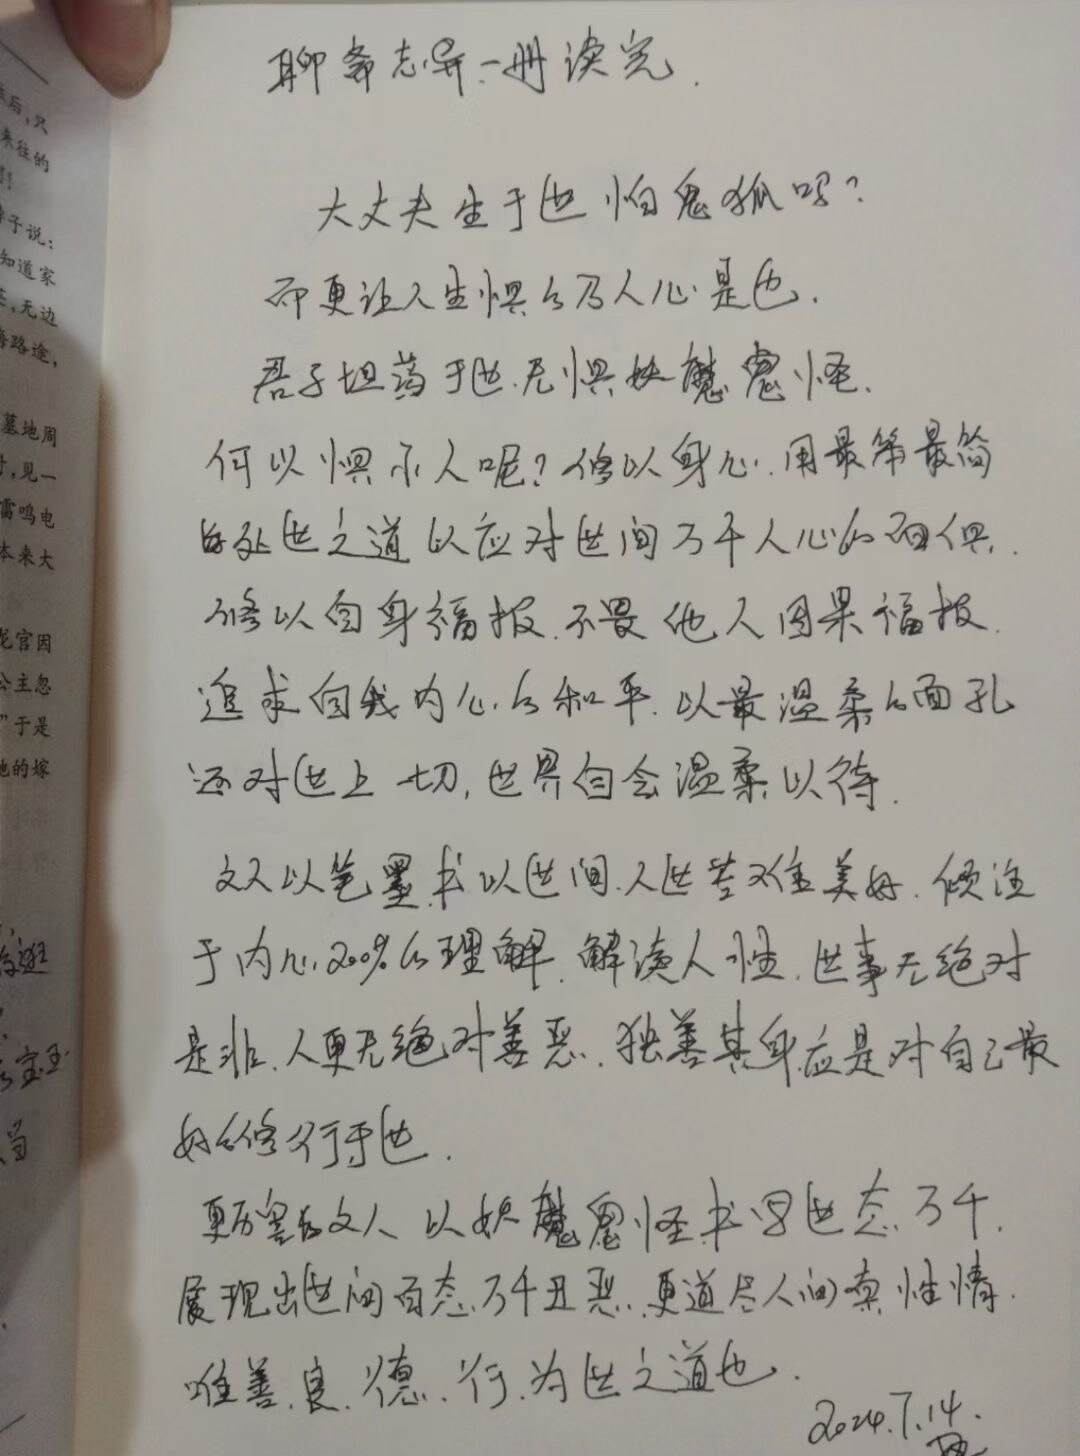 性后,只
来往的
子说:
知道家
无边
海路途,
墓地周
见一
雷鸣电
本来大
龙宫因
公主忽
”于是
他的嫁
聊斋志异一册读完.
大丈夫生于世怕鬼狐吗?
而更让人生惧的乃人心是也.
君子坦荡于世.无惧妖魔鬼怪.
何以惧小人呢?修以身心.用最笨最简
的处世之道以应对世间万千人心的面俱.
修以自身福报.不畏他人因果福报.
追求自我内心的和平.以最温柔的面孔
还对世上一切,世界自会温柔以待.
文人以笔墨.书以世间.人世苦难美好.倾注
于内心.200%的理解.解读人性.世事无绝对
是非.人更无绝对善恶.独善其身.应是对自己最
好的修行于世.
更厉害的文人以妖魔鬼怪书写世态万千.
展现出世间百态.万千丑恶.更道尽人间真性情.
唯善.良.德.行.为世之道也.
2024.7.14.